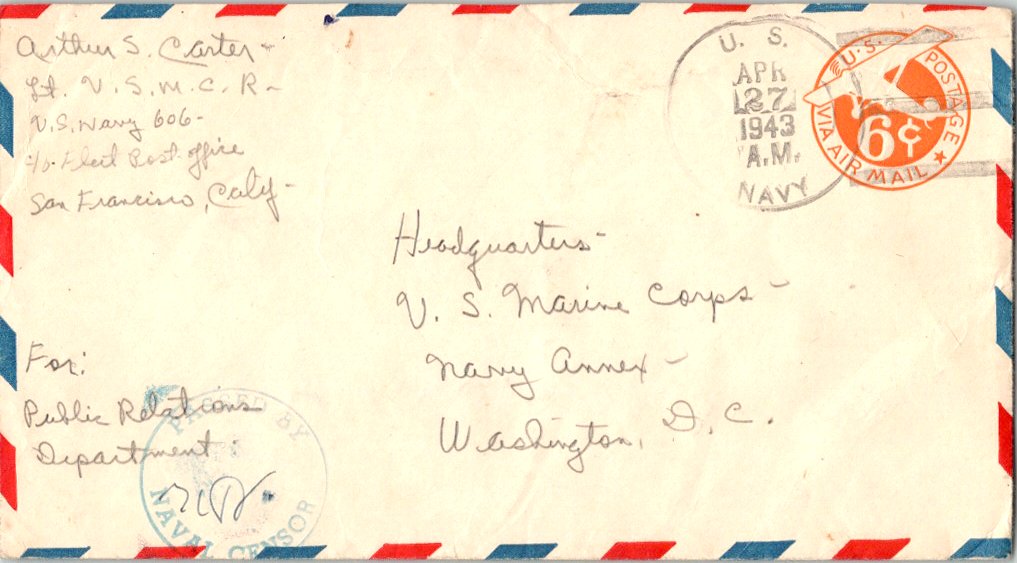 Arthur S. Carter -
Lt. U.S.M.C.R -
U.S. Navy 606 -
c/o Fleet Post Office
San Francisco, Calif -
U. S.
APR
27
1943
A.M.
NAVY
U.S. POSTAGE
6¢
VIA AIR MAIL
Headquarters -
U. S. Marine Corps -
Navy Annex -
Washington, D. C.
For:
Public Relations
Department.
PASSED BY
NAVAL CENSOR